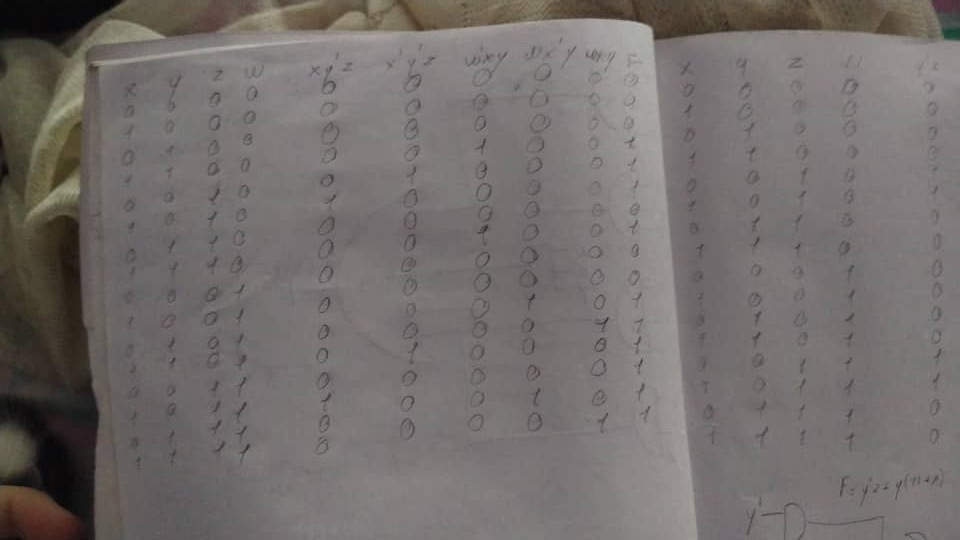 x y z w xy'z x'y'z yxw' wx'y wxy F
0 0 0 0 0 0 0 0 0 0
1 0 0 0 0 0 0 0 0 0
0 1 0 0 0 0 0 0 0 0
1 1 0 0 0 0 1 0 0 1
0 0 1 0 0 1 0 0 0 1
1 0 1 0 1 0 0 0 0 1
0 1 1 0 0 0 0 0 0 0
1 1 1 0 0 0 1 0 0 1
0 0 0 1 0 0 0 0 0 0
1 0 0 1 0 0 0 0 0 0
0 1 0 1 0 0 0 1 0 1
1 1 0 1 0 0 0 0 1 1
0 0 1 1 0 1 0 0 0 1
1 0 1 1 1 0 0 0 0 1
0 1 1 1 0 0 0 1 0 1
1 1 1 1 0 0 0 0 1 1
x y z w y'z
0 0 0 0 0
1 0 0 0 0
0 1 0 0 0
1 1 0 0 0
0 0 1 0 1
1 0 1 0 1
0 1 1 0 0
1 1 1 0 0
0 0 0 1 0
1 0 0 1 0
0 1 0 1 0
1 1 0 1 0
0 0 1 1 1
1 0 1 1 1
0 1 1 1 0
1 1 1 1 0
F = y'z + y(w+x)
y'